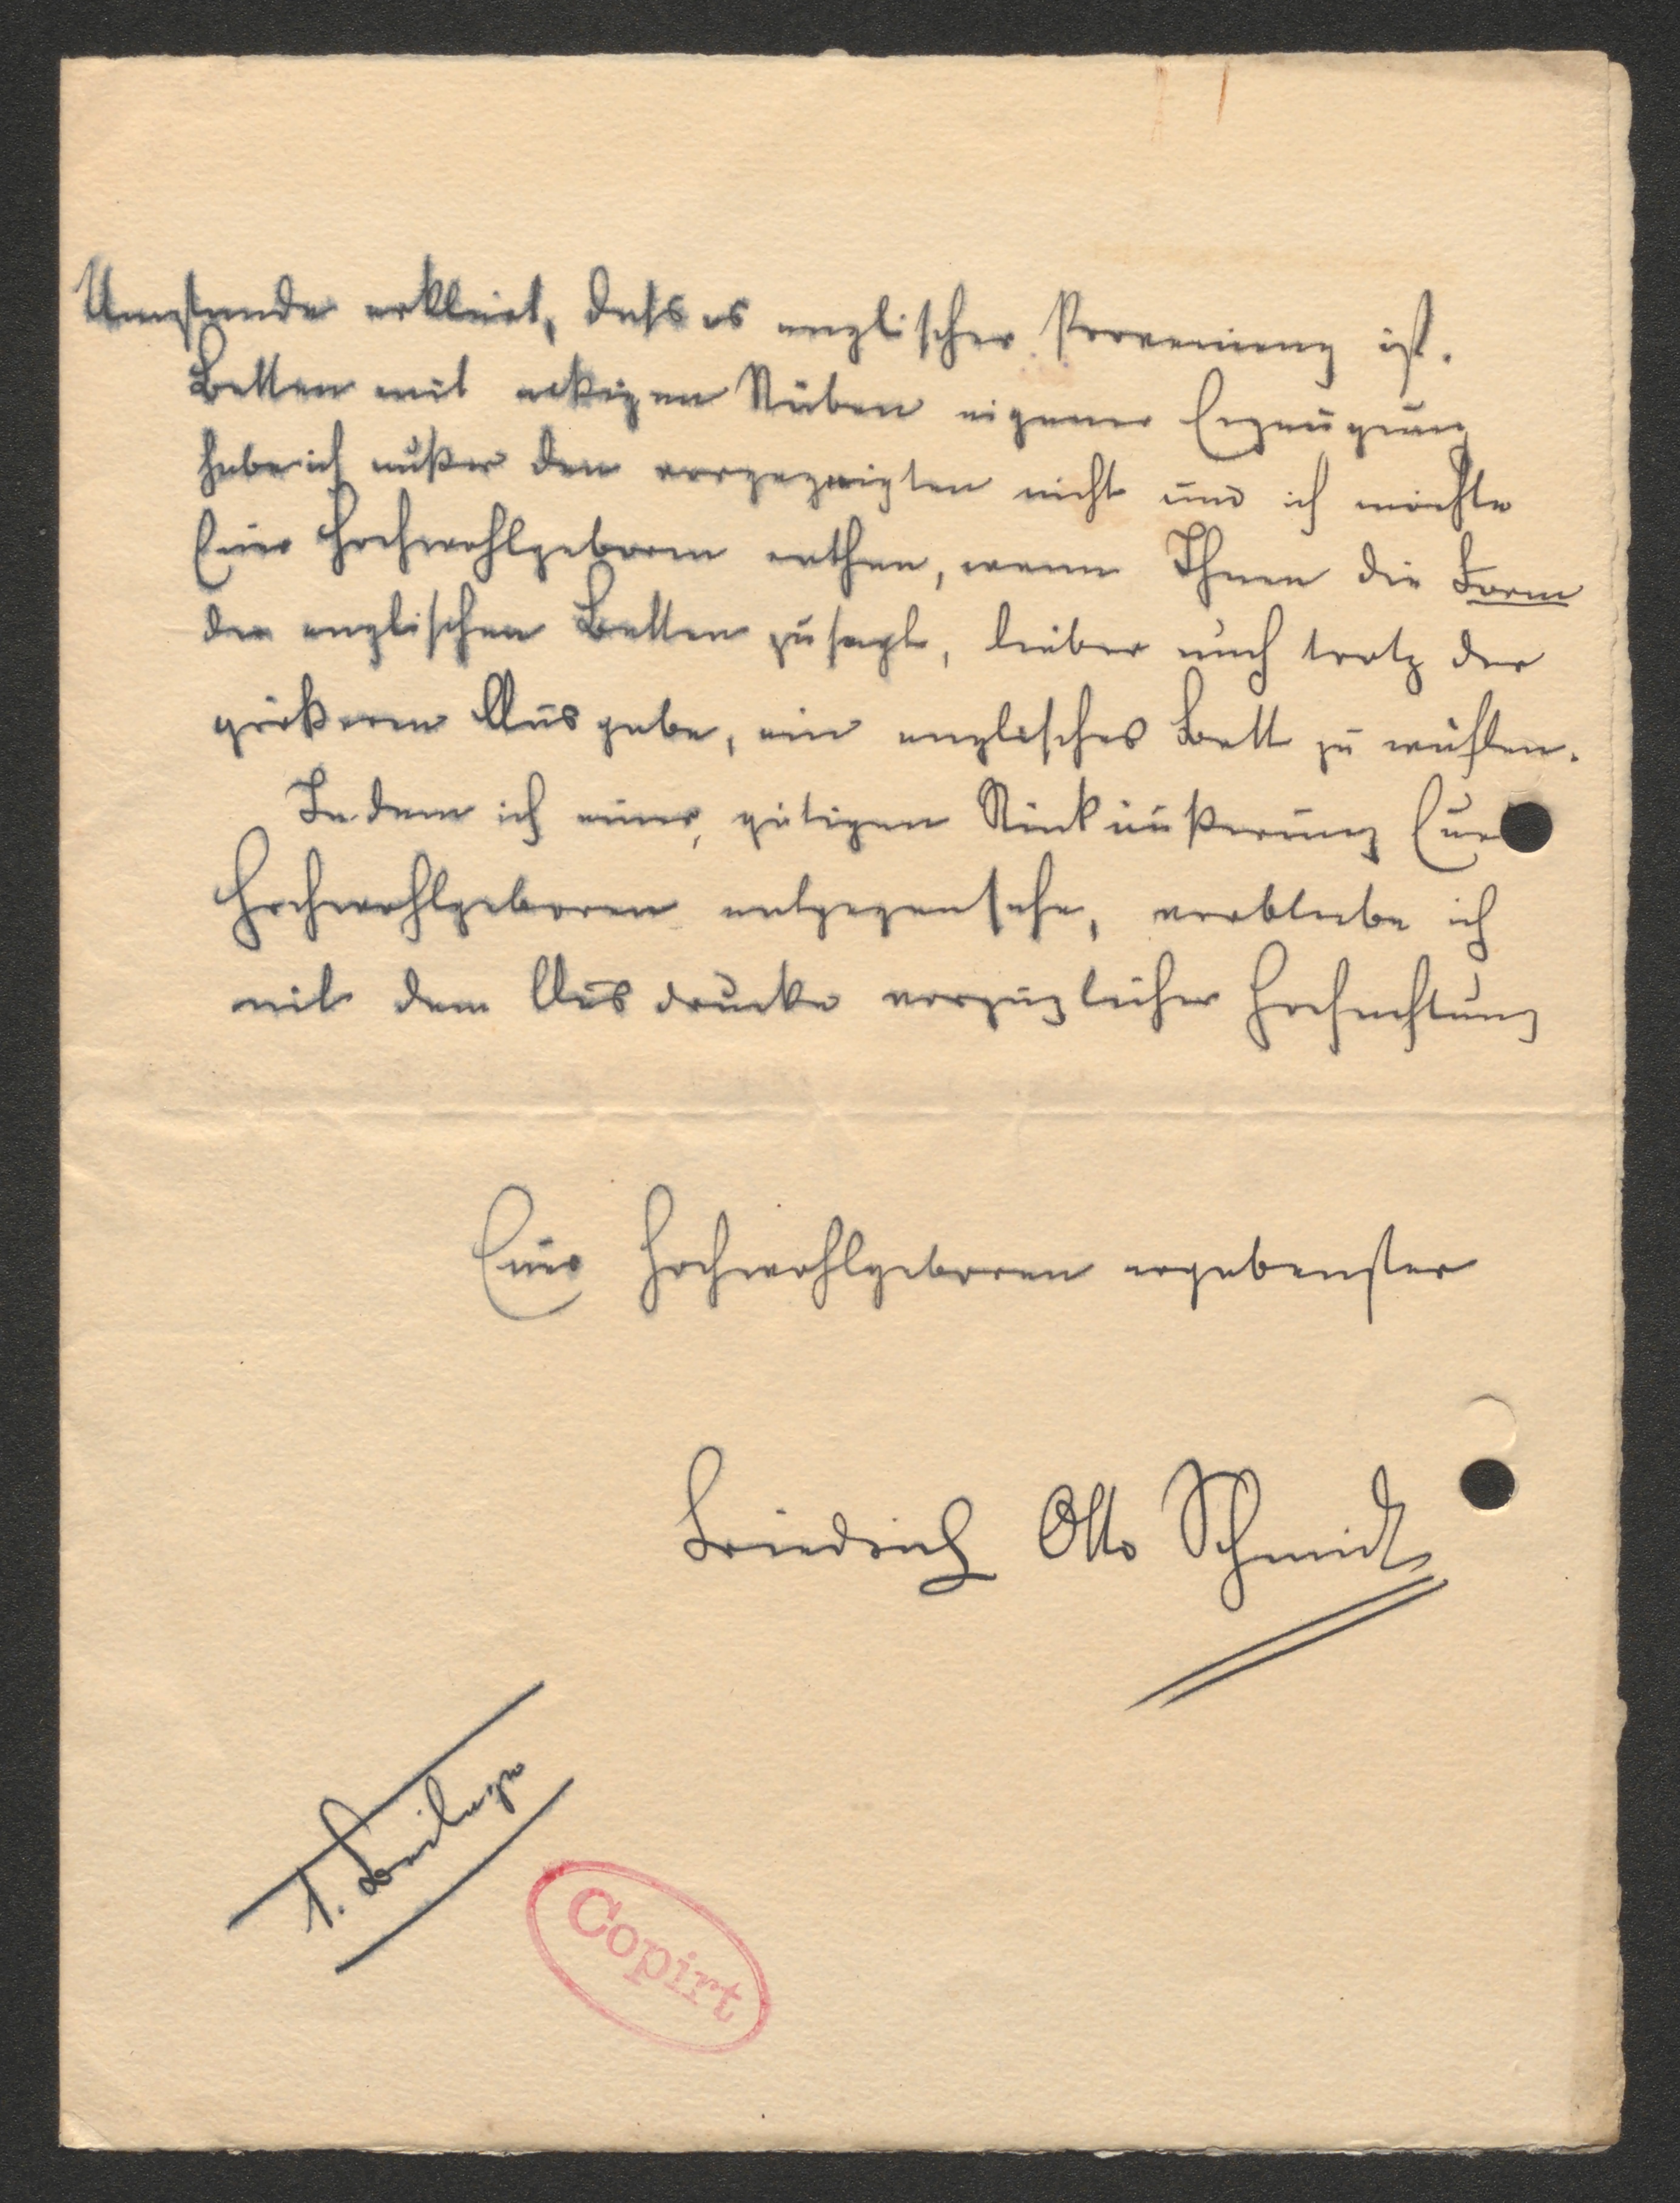 Umstande erklärt, dass es englischer Provenienz ist.
Betten mit eckigen Stäben eigener Erzeugung
habe ich außer den vorgezeigten nicht und ich möchte
Euer Hochwohlgeboren rathen, wenn Ihnen die Form
der englischen Betten zusagt, lieber auch trotz der
größeren Ausgabe, ein englisches Bett zu wählen.
Indem ich einer gütigen Rückäußerung Euer
Hochwohlgeboren entgegensehe, verbleibe ich
mit dem Ausdrucke vorzüglicher Hochachtung
Euer Hochwohlgeboren ergebenster
Friedrich Otto Schmidt
1. Beilage
Copirt